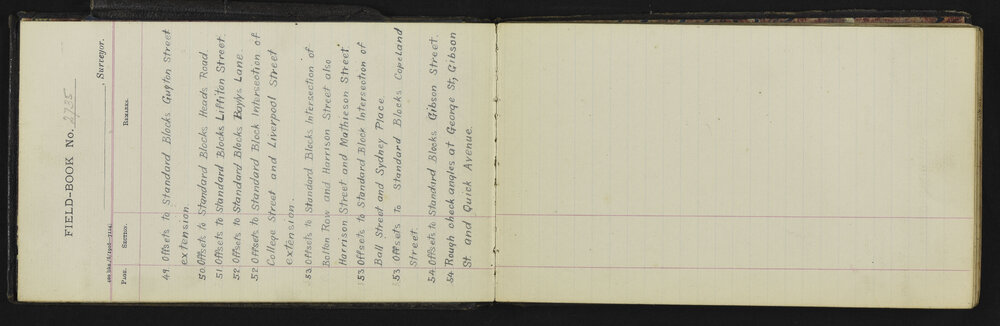 FIELD-BOOK No. 2735
Surveyor.
PAGE. SECTION. REMARKS.
49. Offsets to Standard Blocks Guyton Street
extension
50. Offsets to Standard Blocks Heads Road.
51. Offsets to Standard Blocks Liffiton Street.
52. Offsets to Standard Blocks Baylys Lane.
52 Offsets to Standard Block Intersection of
College Street and Liverpool Street
extension.
53. Offsets to Standard Blocks Intersection of
Bolton Row and Harrison Street also
Harrison Street and Mathieson Street
53 Offsets to Standard Block Intersection of
Ball Street and Sydney Place.
53 Offsets to Standard Blocks Copeland
Street.
54. Offsets to Standard Blocks Gibson Street.
54 Rough check angles at George St, Gibson
St and Quick Avenue.